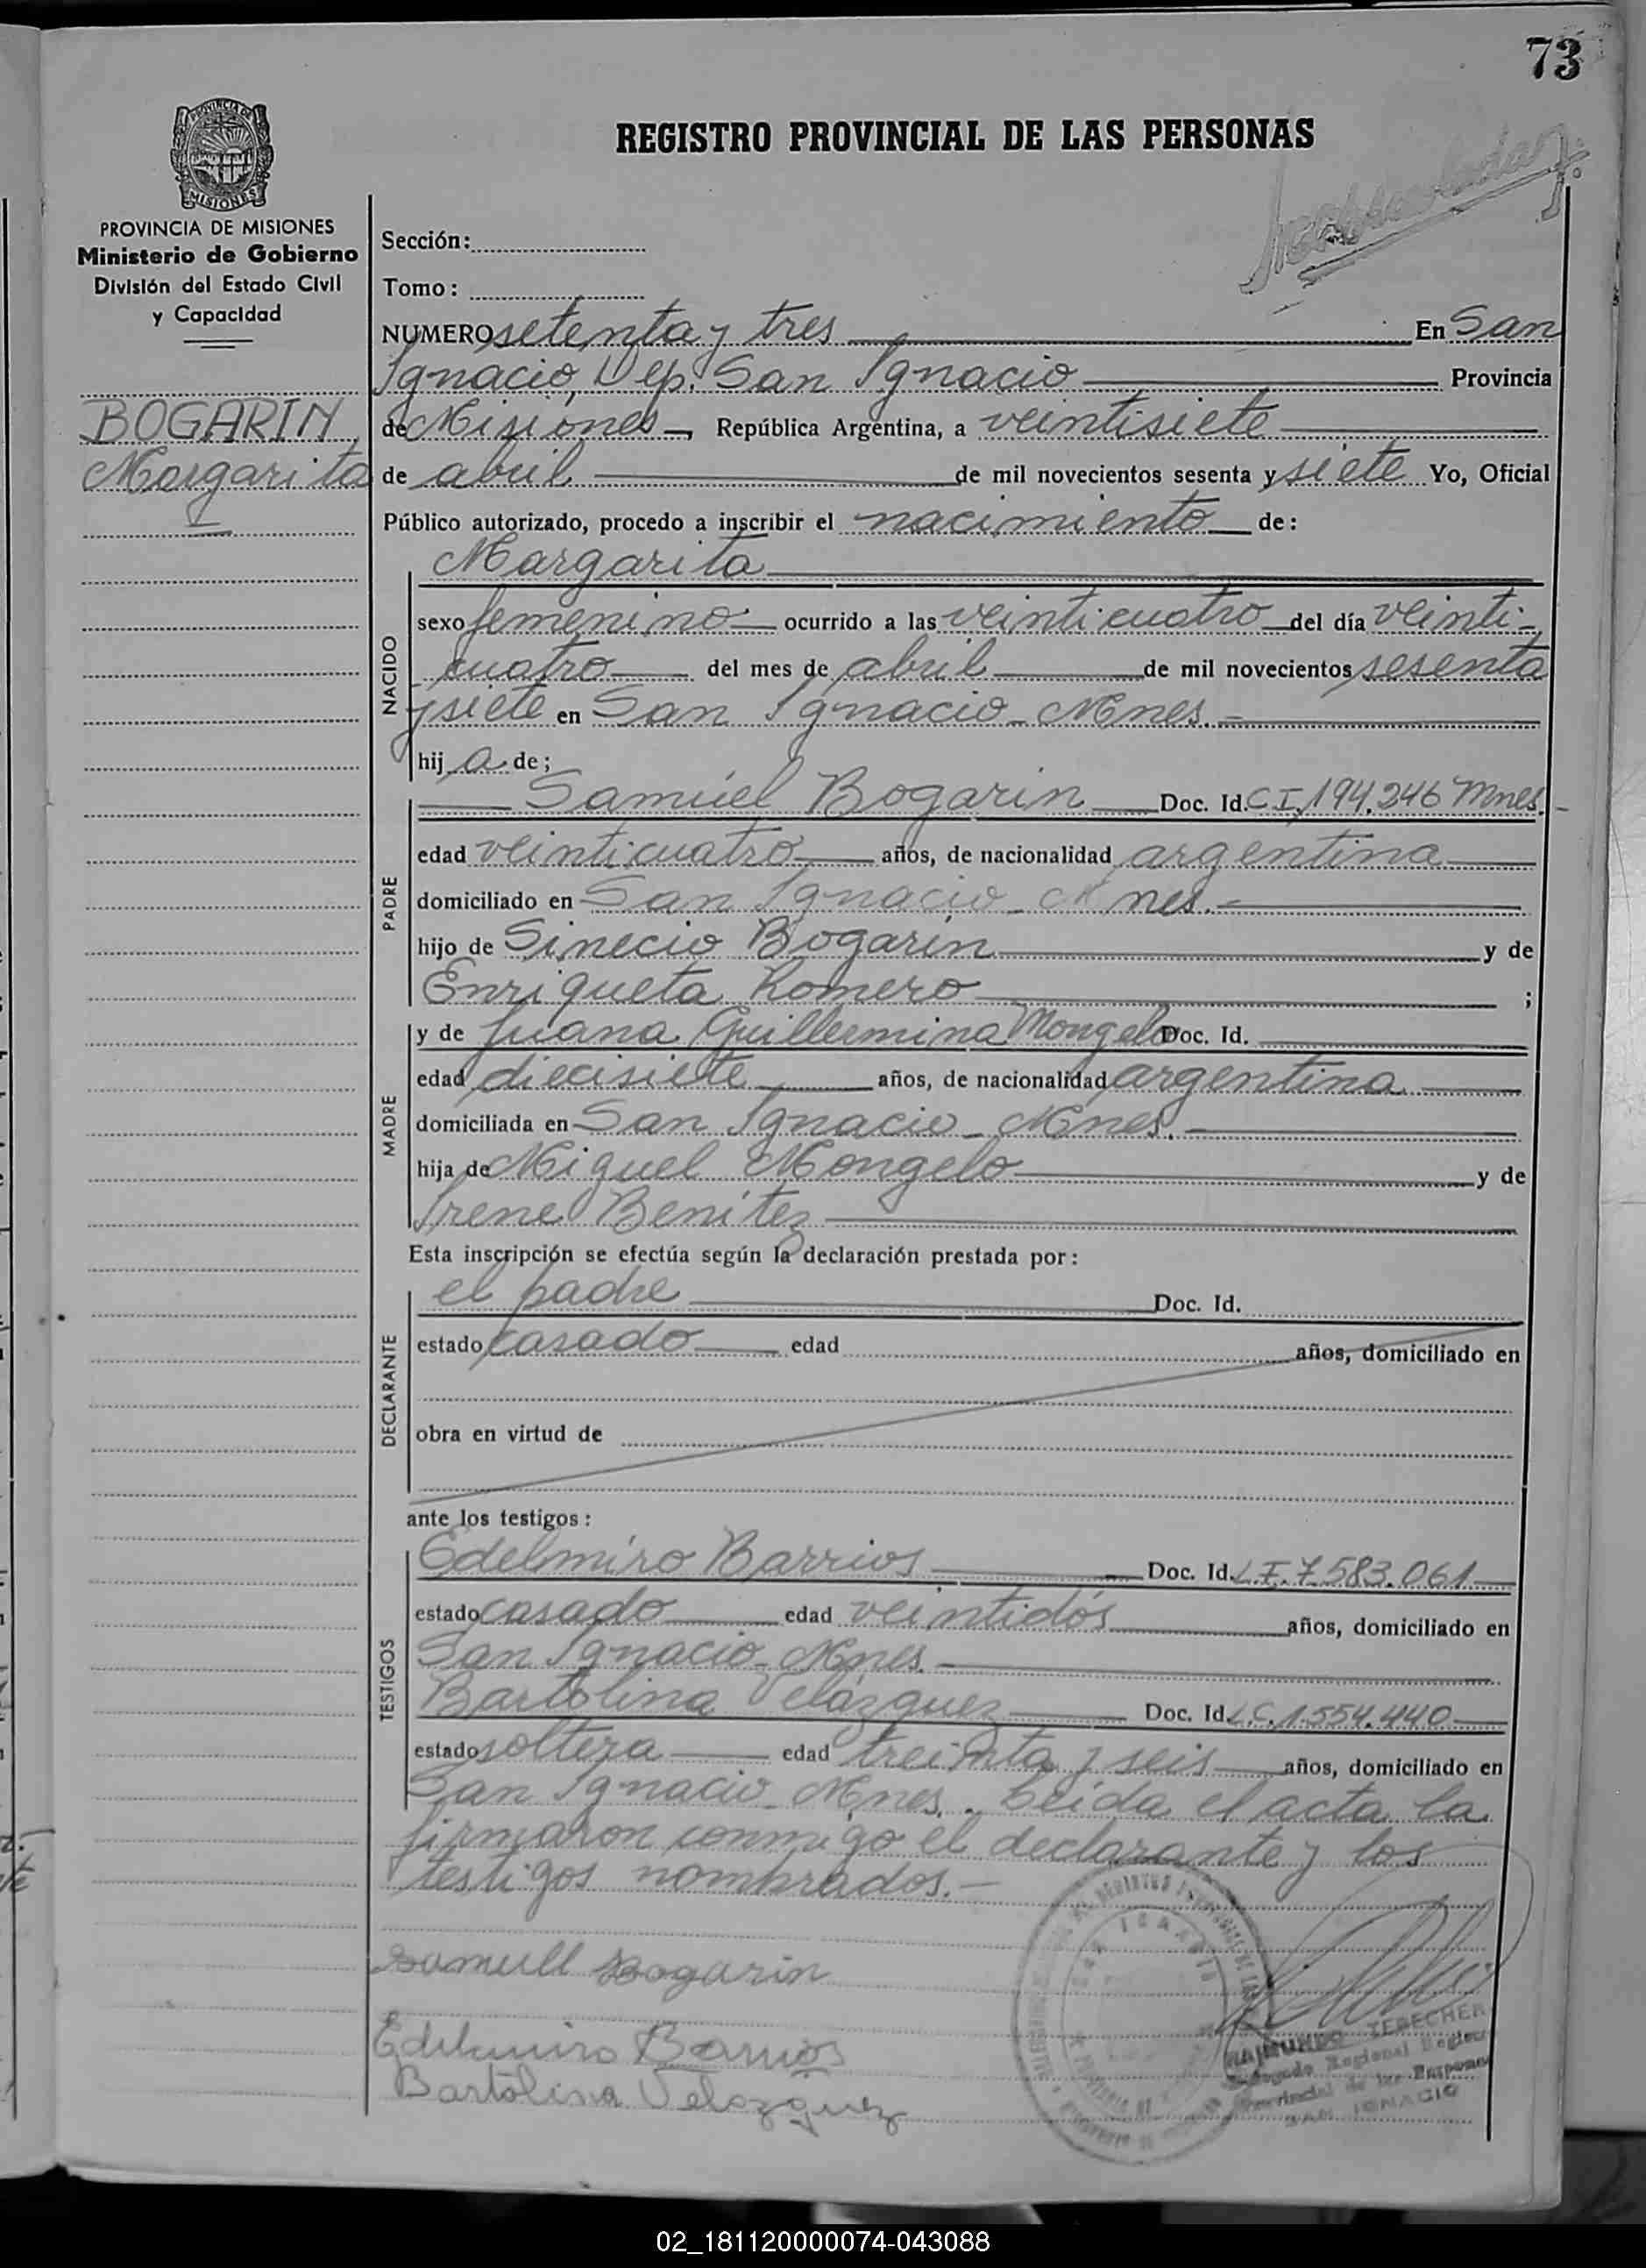 73
PROVINCIA DE
MISIONES
REGISTRO PROVINCIAL DE LAS PERSONAS
PROVINCIA DE MISIONES
Ministerio de Gobierno
División del Estado Civil
y Capacidad
BOGARIN,
Margarita
Sección:
Tomo:
NUMERO setenta y tres En San
Ignacio, Dep. San Ignacio Provincia
de Misiones, República Argentina, a veintisiete
de abril de mil novecientos sesenta y siete Yo, Oficial
Público autorizado, procedo a inscribir el nacimiento de:
NACIDO
Margarita
sexo femenino ocurrido a las veinticuatro del día veinti-
cuatro del mes de abril de mil novecientos sesenta
y siete en San Ignacio - Mnes. -
hij a de;
PADRE
Samúel Bogarin Doc. Id. C.I. 194.246 Mnes.-
edad veinticuatro años, de nacionalidad argentina
domiciliado en San Ignacio - Mnes. -
hijo de Sinecio Bogarín y de
Enriqueta Romero ;
MADRE
y de Juana Guillermina Mongelo Doc. Id.
edad diecisiete años, de nacionalidad argentina
domiciliada en San Ignacio - Mnes. -
hija de Miguel Mongelo y de
Irene Benítez
Esta inscripción se efectúa según la declaración prestada por:
DECLARANTE
el padre Doc. Id.
estado casado edad años, domiciliado en
obra en virtud de
ante los testigos:
TESTIGOS
Edelmiro Barrios Doc. Id. L.E. 7.583.061
estado casado edad veintidós años, domiciliado en
San Ignacio - Mnes. -
Bartolina Velázquez Doc. Id. L.C. 1.554.440
estado soltera edad treinta y seis años, domiciliado en
San Ignacio - Mnes. - Leída el acta la
firmaron conmigo el declarante y los
testigos nombrados. -
Samuell Bogarin
Edelmiro Barrios
Bartolina Velozquez
RAIMUNDO
Delegado Regional Registro
Provincial de las Personas
SAN IGNACIO
02_181120000074-043088